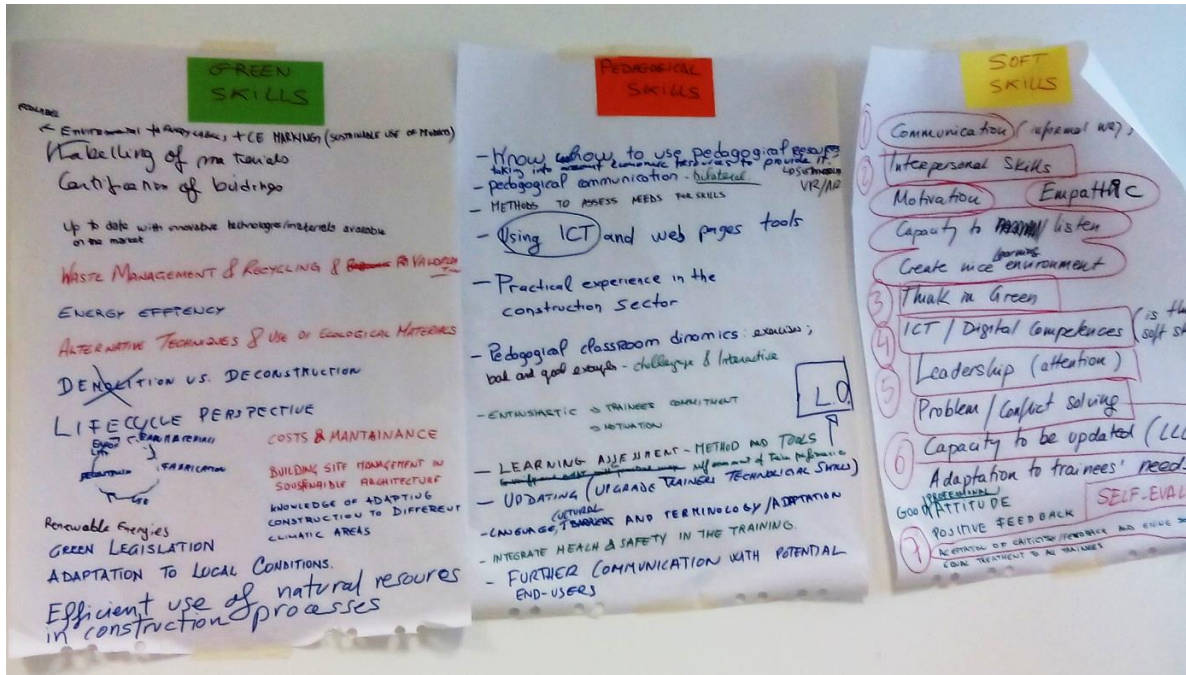 GREEN
SKILLS
ECOLABEL
Environmental + Energy label, + CE MARKING (SUSTAINABLE USE OF PRODUCTS)
Labelling of materials
Certification of buidings
Up to date with innovative technologies/materials available
on the market
WASTE MANAGEMENT & RECYCLING &
ENERGY EFFIENCY
ALTERNATIVE TECHNIQUES & USE OF ECOLOGICAL MATERIALS
DEMOLITION VS. DECONSTRUCTION
LIFECYCLE PERSPECTIVE
RAW MATERIALS
FABRICATION
USE
COSTS & MANTAINANCE
BUILDING SITE MANAGEMENT IN
SOUSTENAIBLE ARCHITECTURE
KNOWLEDGE OF ADAPTING
CONSTRUCTION TO DIFFERENT
CLIMATIC AREAS
Renewable Energies
GREEN LEGISLATION
ADAPTATION TO LOCAL CONDITIONS.
Efficient use of natural resoures
in construction processes
PEDAGOGICAL
SKILLS
- Know how to use pedagogical resources
taking into account economic resources to provide it.
- pedagogical communication - bilateral
VR/AR
- METHODS TO ASSESS NEEDS FOR SKILLS
- Using ICT and web pages tools
- Practical experience in the
construction sector
- Pedagogical classroom dinamics: exercises;
bad and good examples - challenges & Interactive
L.O.
- ENTHUSIASTIC → TRAINEES COMMITMENT
→ MOTIVATION
- LEARNING ASSESSMENT - METHOD AND TOOLS
- UPDATING (UPGRADE TRAINERS TECHNOLOGICAL SKILLS)
CULTURAL
- LANGUAGE, BARRIERS AND TERMINOLOGY/ADAPTATION
- INTEGRATE HEALH & SAFETY IN THE TRAINING.
- FURTHER COMMUNICATION WITH POTENTIAL
END-USERS
SOFT
SKILLS
1 Communication (informal way,
2 Interpersonal Skills
Motivation Empathic
Capacity to listen
learning
Create nice environment
3 Think in Green
4 ICT / Digital Competences (is
soft
5 Leadership (attention)
Problem / Conflict solving
6 Capacity to be updated (LLL
Adaptation to trainees' needs
PROFESSIONAL
GOOD ATTITUDE
SELF-EVAL
POSITIVE FEEDBACK
7 ACCEPTATION OF CRITICISM/FEEDBACK AND
EQUAL TREATMENT TO ALL TRAINEES